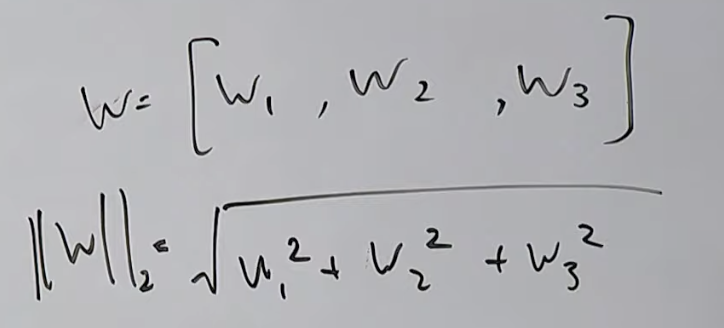 W = [W₁ , W₂ , W₃]
||W||₂ = √(W₁² + W₂² + W₃²)